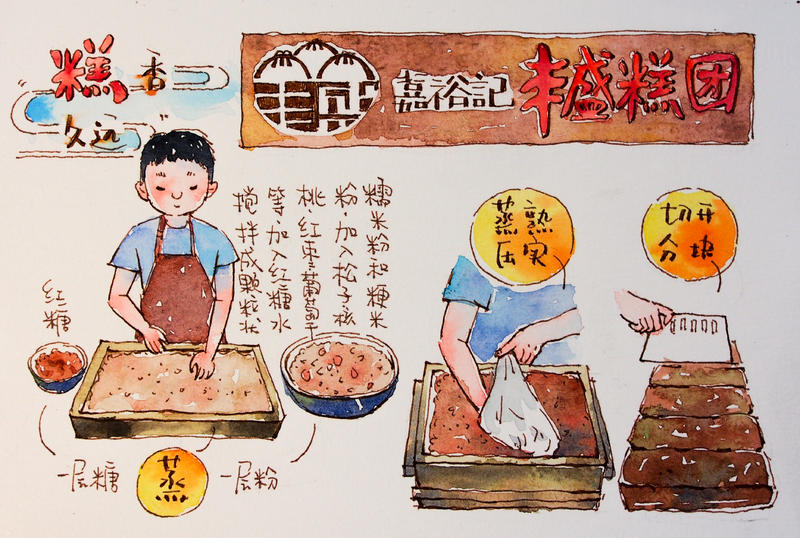 糕香
久远
嘉裕記
丰盛糕团
糯米粉和粳米
粉、加入松子、核
桃、红枣、葡萄干
等、加入红糖水
搅拌成颗粒状
红糖
一层糖
蒸
一层粉
蒸熟
压实
切开
分块